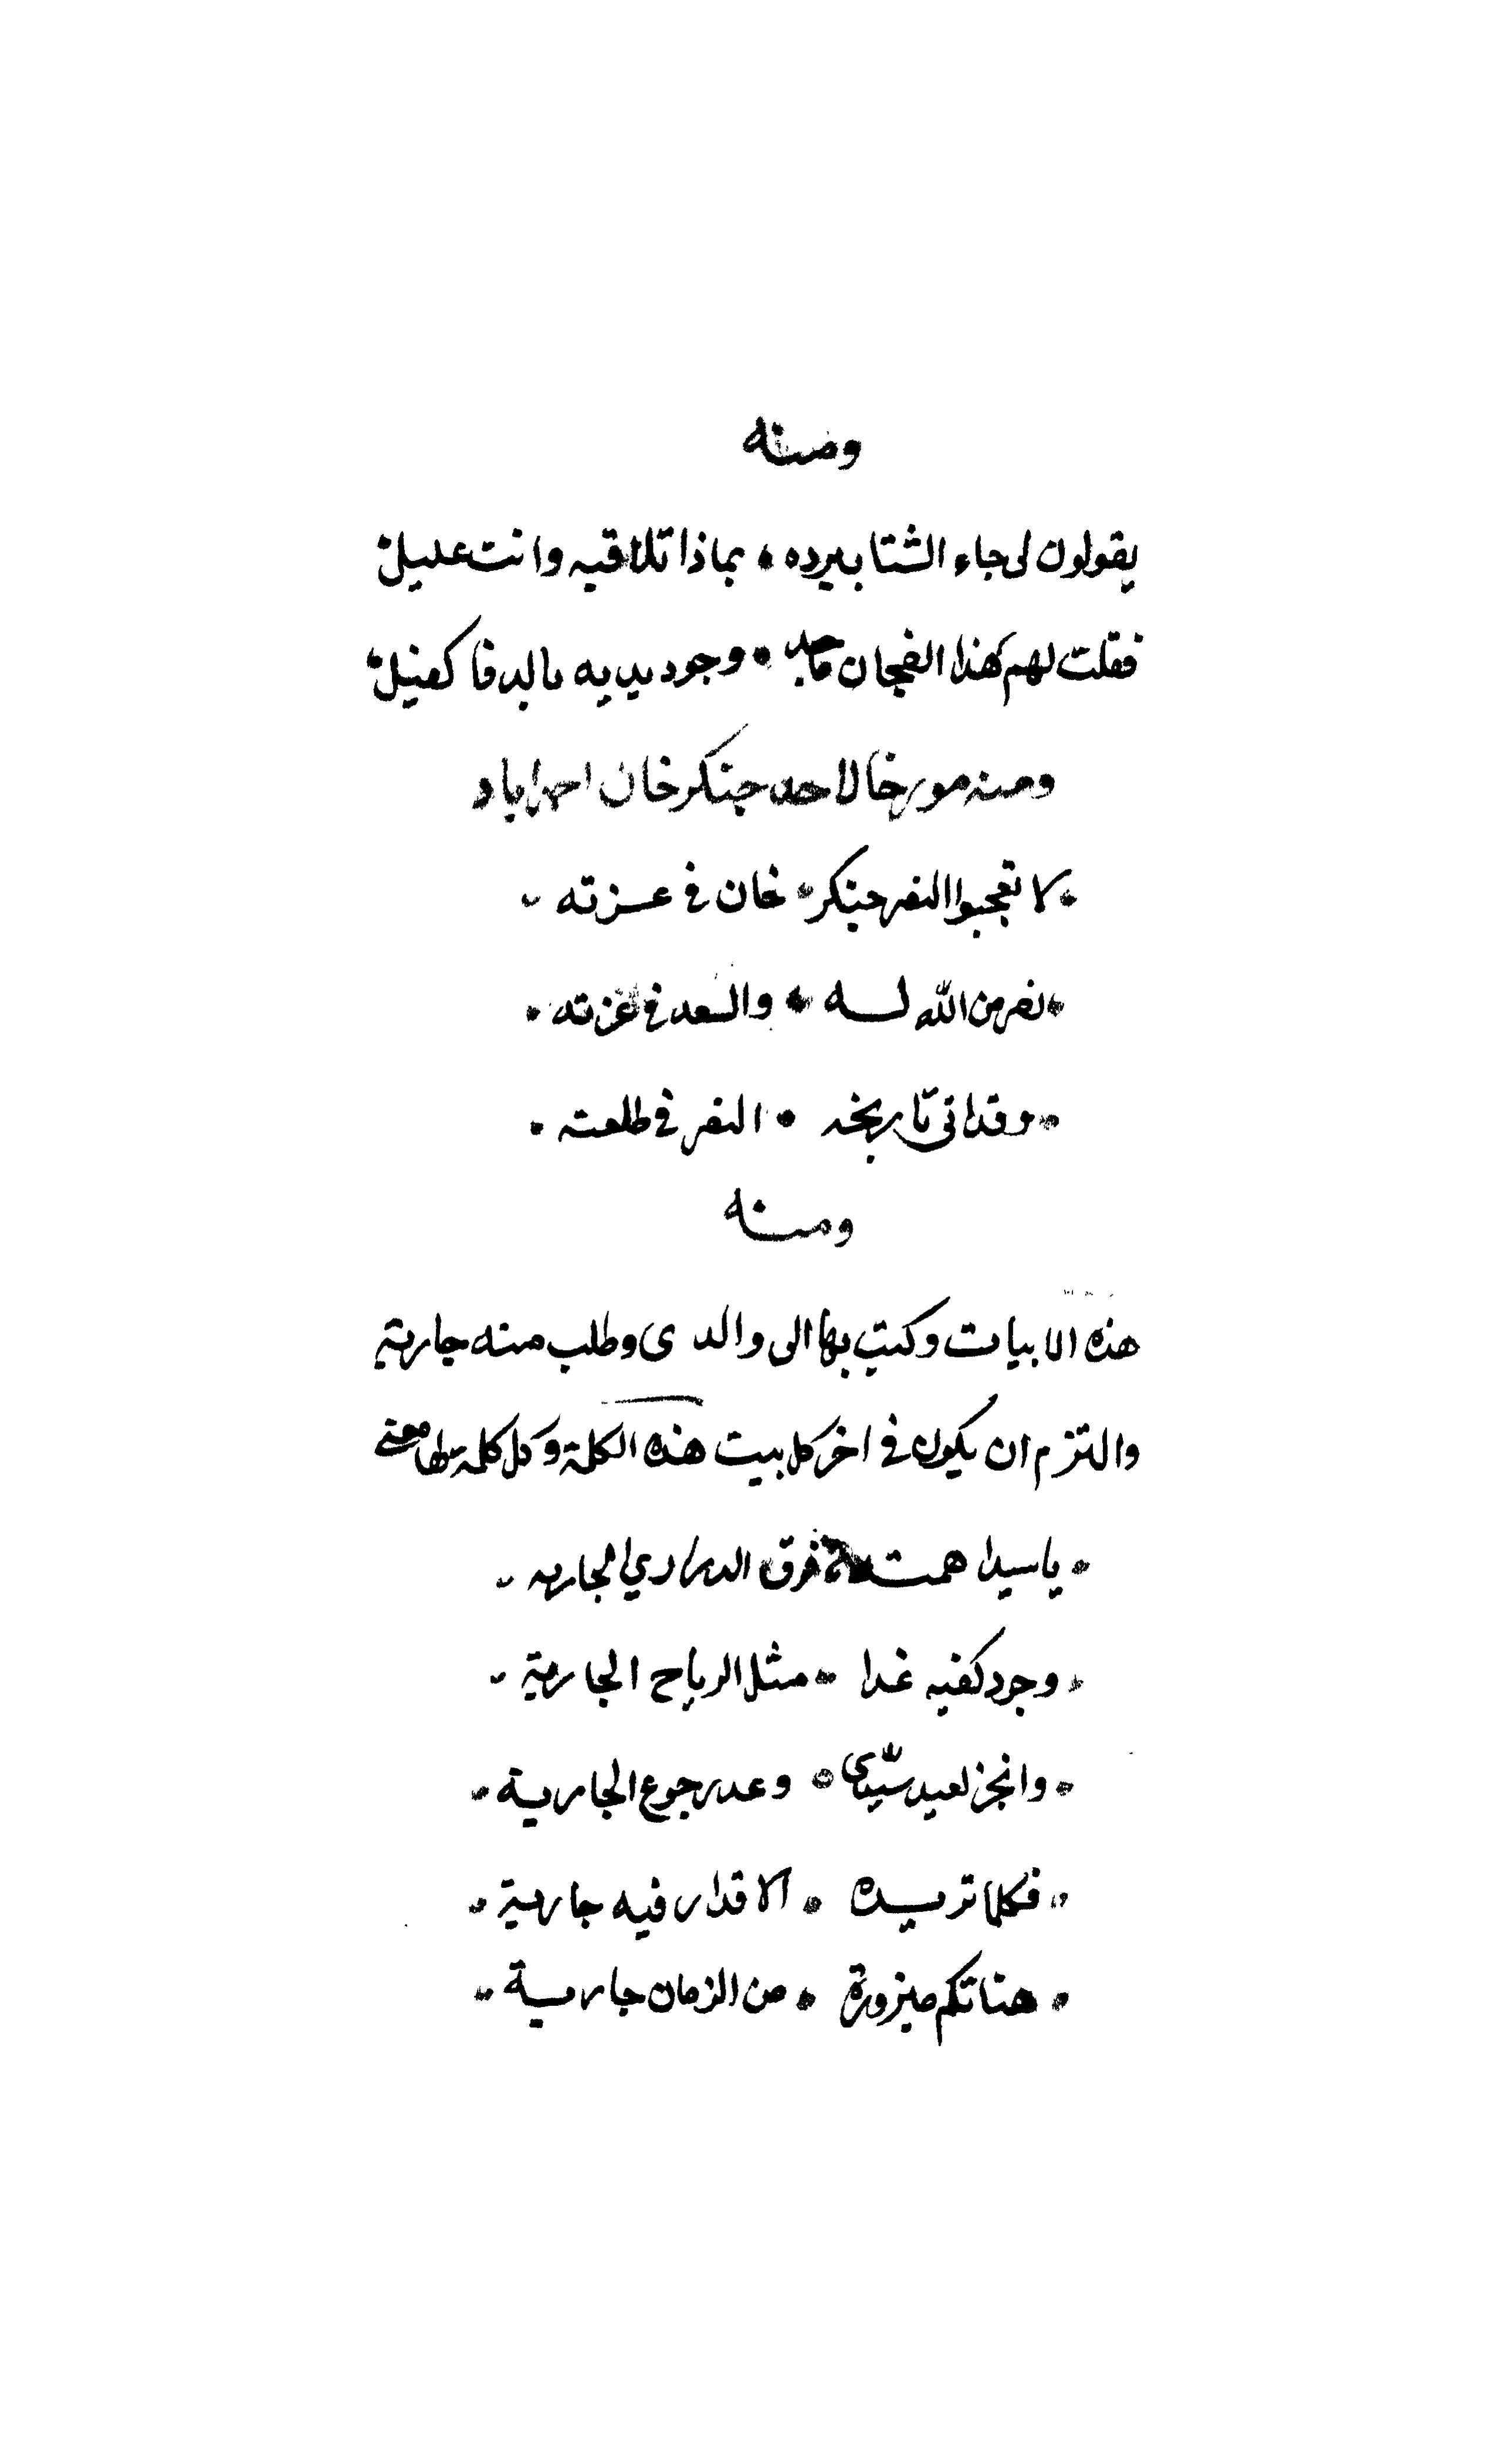 ومنه
يقولون لي جاء الشتا ببرده ٭ بماذا تلاقيه وانت عليل
فقلت لهم كهذا الفنجان ٭ وجود يديه بالدفا كفيل
ومنه مورخا لاحد جنكرخان احمداباد
٭ لا تعجبوا النصر جنكر ٭ خان في عزته ٭
٭ نصر من الله له ٭ والسعد في غزته ٭
٭ وقد اتى تاريخه ٭ النصر في طلعته ٭
ومنه
هذه الابيات وكتب بها الى والدي وطلب منه جارية
والتزم ان يكون في اخر كل بيت هذه الكلمة وكل كلمة لها معنى
٭ يا سيدا همته فوق الدراري الجاريه ٭
٭ وجود كفيه غدا ٭ مثل الرياح الجارية ٭
٭ وانجز لعبد سيدي ٭ وعد رجوع الجارية ٭
٭ فكلما تريده ٭ الاقدار فيه جارية ٭
٭ هناتكم مبزورة ٭ من الزمان جارية ٭